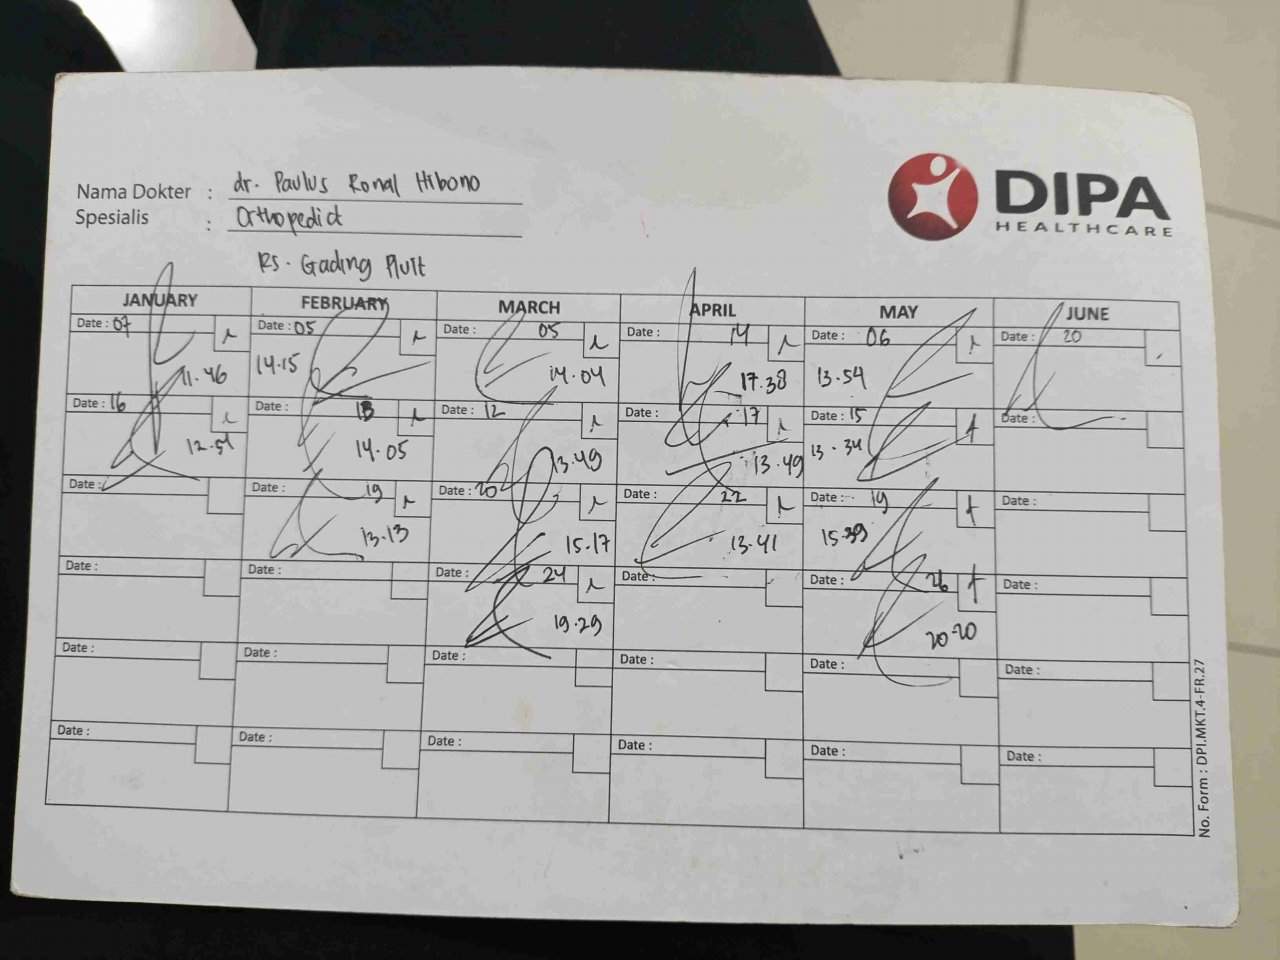 DIPA
HEALTHCARE
Nama Dokter : dr. Paulus Ronal Hibono
Spesialis : Orthopedict
RS. Gading Pluit
JANUARY FEBRUARY MARCH APRIL MAY JUNE
Date : 07 Date : 05 Date : 05 Date : 14 Date : 06 Date : 20
11.46 14.15 14.04 17.38 13.54
Date : 16 Date : 13 Date : 12 Date : 17 Date : 15 Date :
12.51 14.05 13.49 13.49 13.34
Date : Date : 19 Date : 20 Date : 22 Date : 19 Date :
13.13 15.17 13.41 15.39
Date : Date : Date : 24 Date : Date : 26 Date :
19.29 20.20
Date : Date : Date : Date : Date : Date :
Date : Date : Date : Date : Date : Date :
No. Form : DPI.MKT.4-FR.27